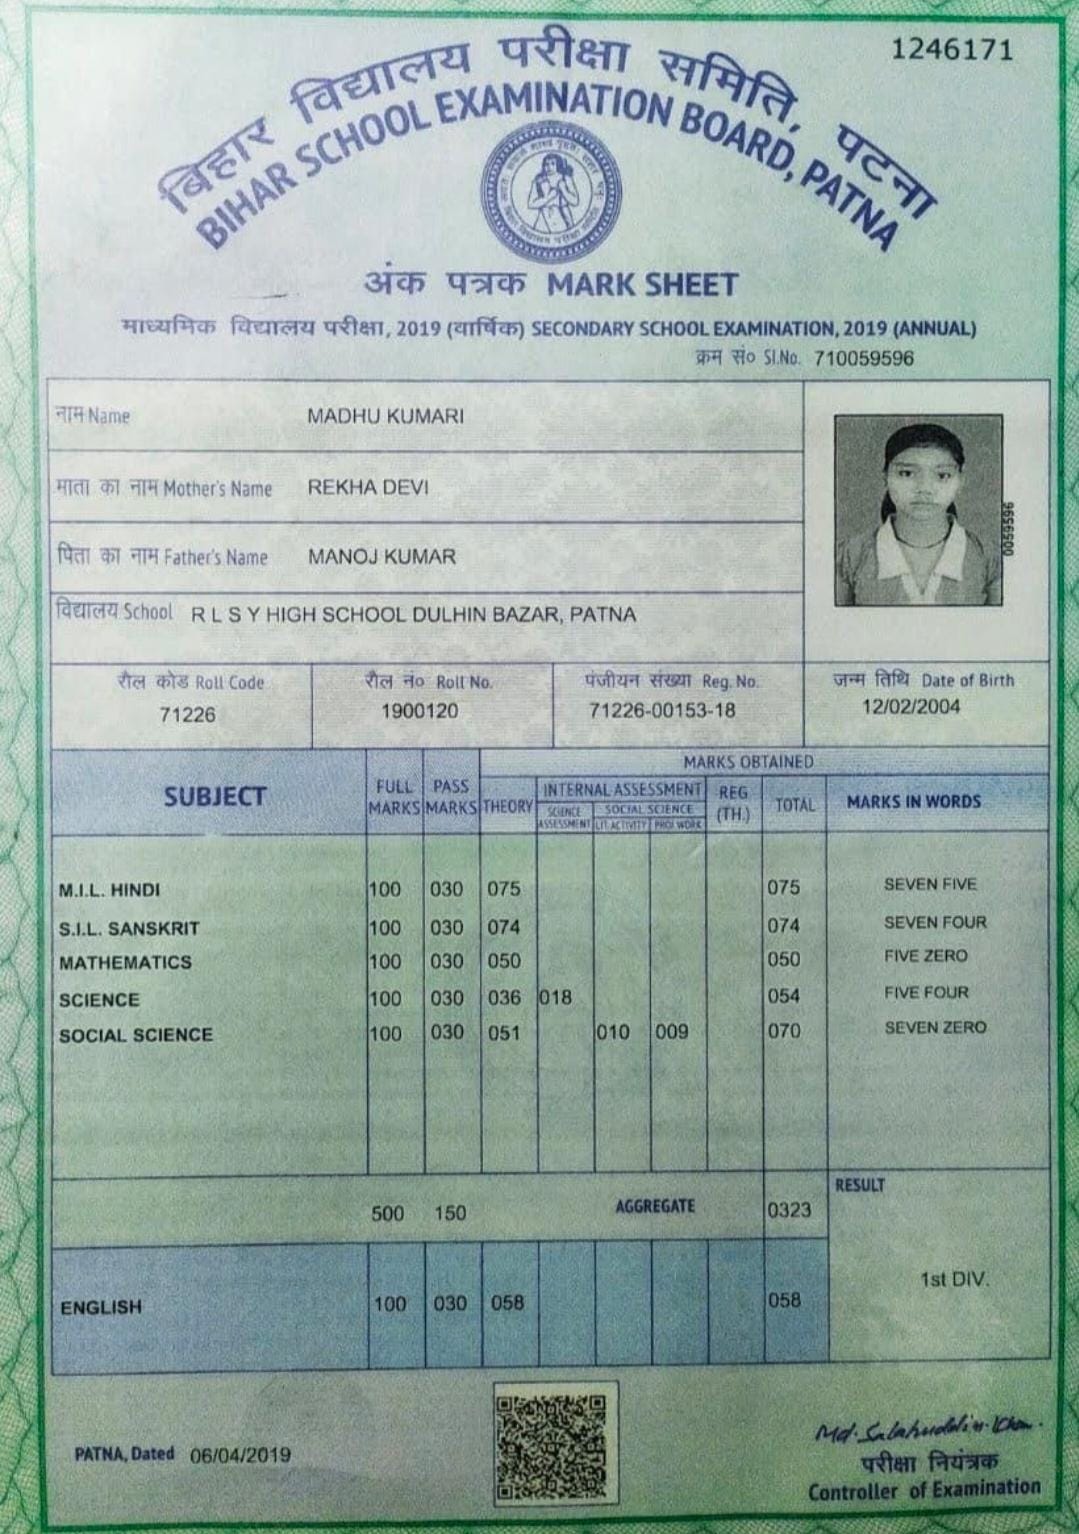 1246171
बिहार विद्यालय परीक्षा समिति, पटना
BIHAR SCHOOL EXAMINATION BOARD, PATNA
अंक पत्रक MARK SHEET
माध्यमिक विद्यालय परीक्षा, 2019 (वार्षिक) SECONDARY SCHOOL EXAMINATION, 2019 (ANNUAL)
क्रम सं० Sl.No. 710059596
नाम Name MADHU KUMARI
माता का नाम Mother's Name REKHA DEVI
0059596
पिता का नाम Father's Name MANOJ KUMAR
विद्यालय School R L S Y HIGH SCHOOL DULHIN BAZAR, PATNA
रौल कोड Roll Code रौल नं० Roll No. पंजीयन संख्या Reg. No. जन्म तिथि Date of Birth
71226 1900120 71226-00153-18 12/02/2004
MARKS OBTAINED
SUBJECT FULL MARKS PASS MARKS THEORY INTERNAL ASSESSMENT REG (TH.) TOTAL MARKS IN WORDS
SCIENCE ASSESSMENT SOCIAL SCIENCE
LIT. ACTIVITY PROJ. WORK
M.I.L. HINDI 100 030 075 075 SEVEN FIVE
S.I.L. SANSKRIT 100 030 074 074 SEVEN FOUR
MATHEMATICS 100 030 050 050 FIVE ZERO
SCIENCE 100 030 036 018 054 FIVE FOUR
SOCIAL SCIENCE 100 030 051 010 009 070 SEVEN ZERO
RESULT
500 150 AGGREGATE 0323
1st DIV.
ENGLISH 100 030 058 058
Md. Salahuddin Khan
PATNA, Dated 06/04/2019
परीक्षा नियंत्रक
Controller of Examination